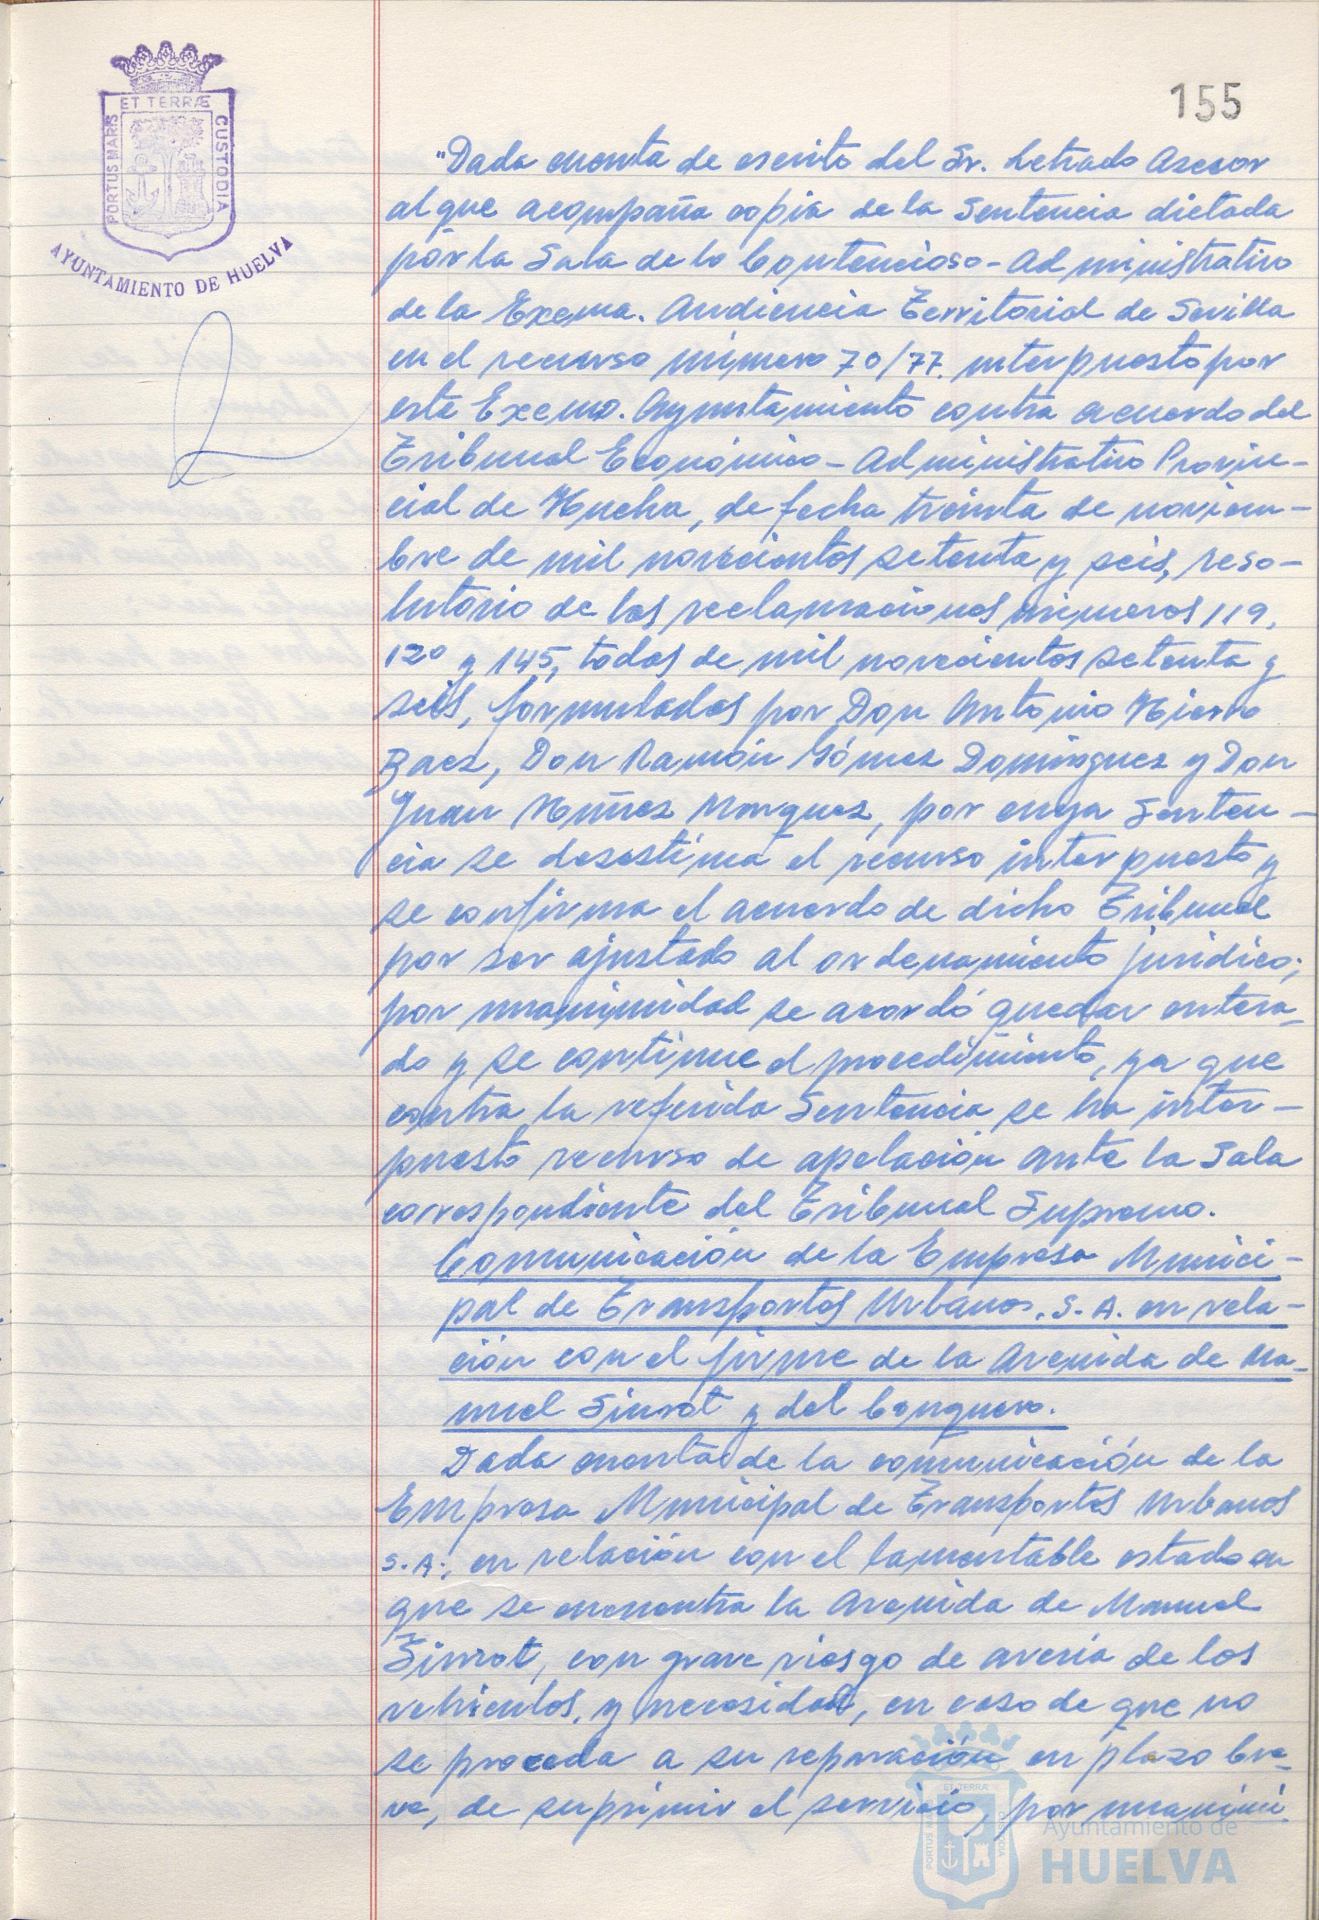 ET TERRÆ
PORTUS MARIS
CUSTODIA
AYUNTAMIENTO DE HUELVA
155
"Dada cuenta de escrito del Sr. Letrado Asesor
al que acompaña copia de la Sentencia dictada
por la Sala de lo Contencioso-Administrativo
de la Excma. Audiencia Territorial de Sevilla
en el recurso número 70/77. interpuesto por
este Excmo. Ayuntamiento contra acuerdo del
Tribunal Económico-Administrativo Provin-
cial de Huelva, de fecha treinta de noviem-
bre de mil novecientos setenta y seis, reso-
lutorio de las reclamaciones números 119,
120 y 145, todas de mil novecientos setenta y
seis, formuladas por Don Antonio Hierro
Baez, Don Ramón Gómez Domínguez y Don
Juan Núñez Marquez, por cuya Senten-
cia se desestima el recurso interpuesto y
se confirma el acuerdo de dicho Tribunal
por ser ajustado al ordenamiento jurídico;
por unanimidad se acordó quedar entera-
do y se continue el procedimiento, ya que
contra la referida Sentencia se ha inter-
puesto recurso de apelación ante la Sala
correspondiente del Tribunal Supremo.
Comunicación de la Empresa Munici-
pal de Transportes Urbanos, S.A. en rela-
ción con el firme de la Avenida de Ma-
nuel Siurot y del Conquero.
Dada cuenta de la comunicación de la
Empresa Municipal de Transportes Urbanos
S.A., en relación con el lamentable estado en
que se encuentra la Avenida de Manuel
Siurot, con grave riesgo de avería de los
vehículos, y necesidad, en caso de que no
se proceda a su reparación en plazo bre-
ve, de suprimir el servicio, por unanimi
ET TERRÆ
PORTUS MARIS
CUSTODIA
Ayuntamiento de
HUELVA